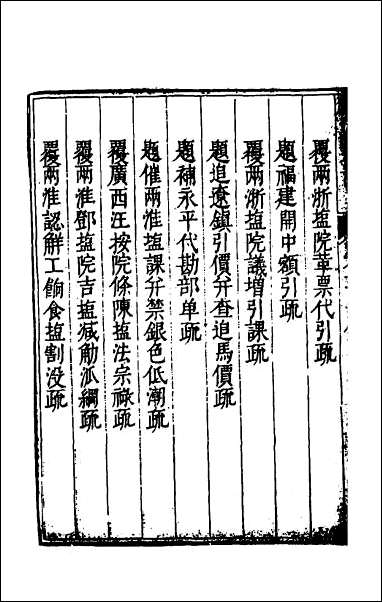 覆两浙塩院革票代引疏
題福建開中額引疏
覆两浙塩院議增引課疏
題追遼鎮引價并查追馬價疏
題補永平代勘部单疏
題催两淮塩課并禁銀色低潮疏
覆廣西汪按院條陳塩法宗祿疏
覆两淮鄧塩院吉塩减觔派綱疏
覆两淮認觧工餉食塩割没疏